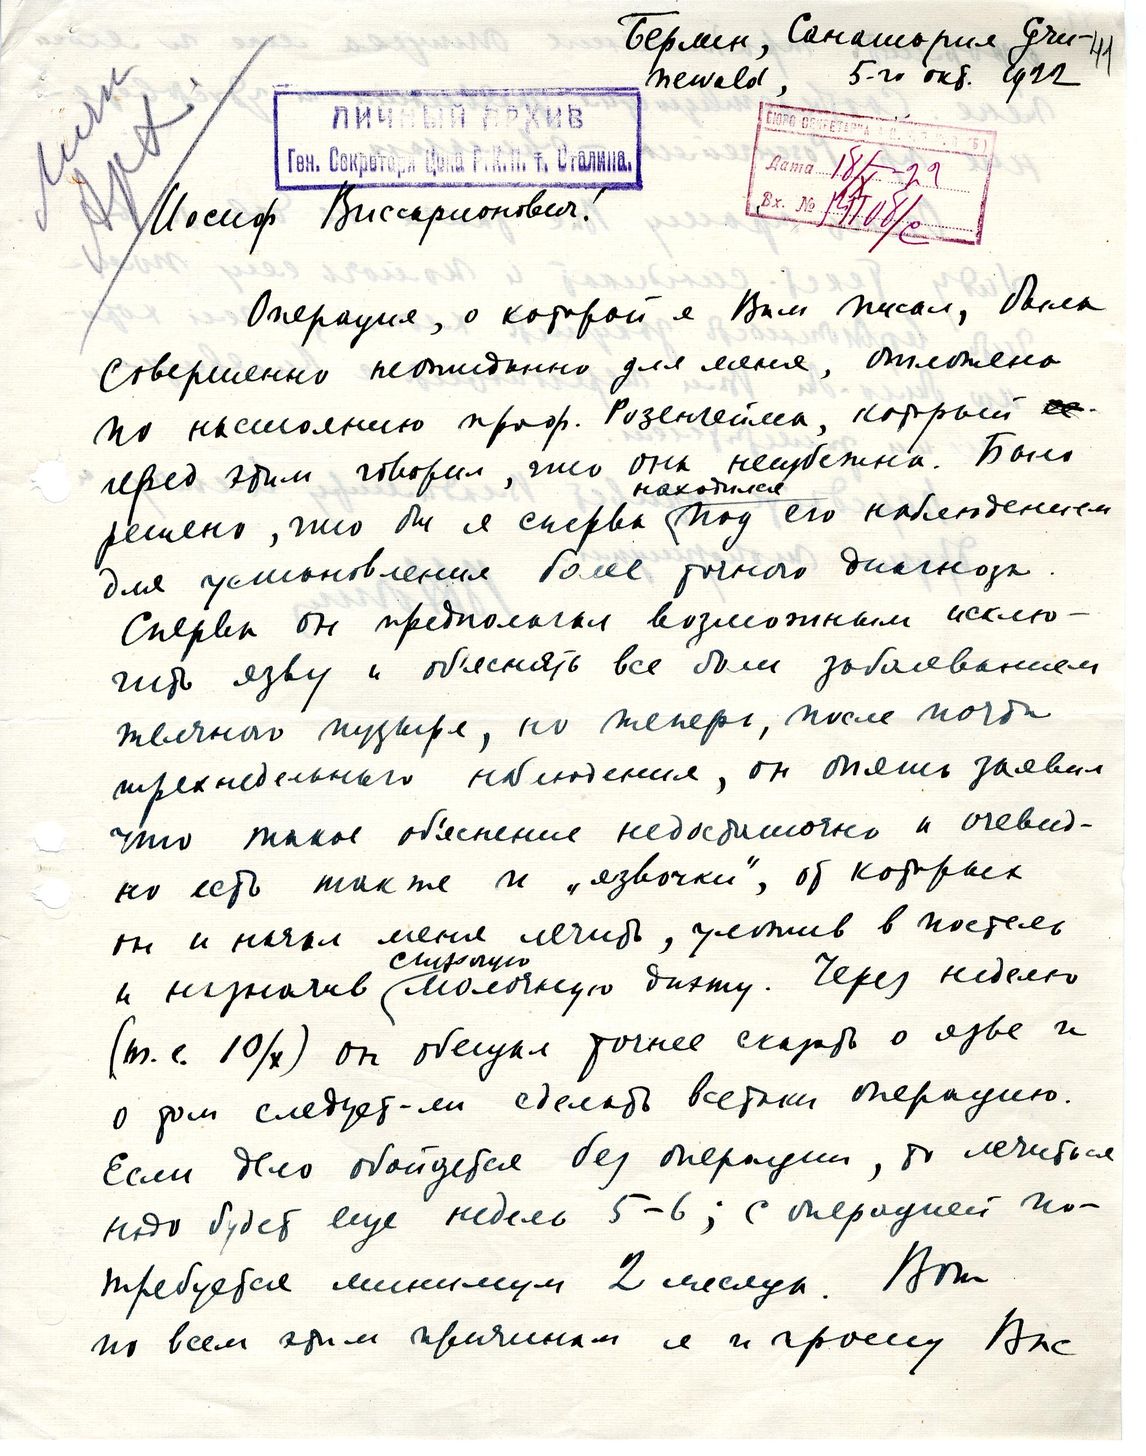 41
Берлин, Санатория Gru-
newald, 5-го окт. 1922
Личн.
Арх.
ЛИЧНЫЙ АРХИВ
Ген. Секретаря Цека Р.К.П. т. Сталина.
БЮРО СЕКРЕТАРИА
Дата 18/X-22
Вх. №
Иосиф Виссарионович!
Операция, о которой я Вам писал, была
совершенно неожиданно для меня, отложена
по настоянию проф. Розенгейма, который
перед этим говорил, что она неизбежна. Было
решено, что бы я сперва находился под его наблюдением
для установления более точного диагноза.
Сперва он предполагал возможным исклю-
чить язву и об'яснять все боли заболеванием
желчного пузыря, но теперь, после почти
трехнедельного наблюдения, он опять заявил
что такое об'яснение недостаточно и очевид-
но есть также и „язвочки", от которых
он и начал меня лечить, уложив в постель
и назначив строгую молочную диэту. Через неделю
(т.е. 10/X) он обещал точнее сказать о язве и
о том следует-ли сделать всетаки операцию.
Если дело обойдется без операции, то лечиться
надо будет еще недель 5-6; с операцией по-
требуется минимум 2 месяца. Вот
по всем этим причинам я и прошу Вас